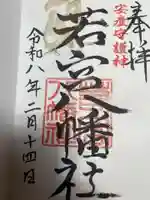 奉拝
安産守護神
若宮八幡社
令和八年二月十四日